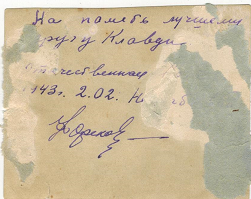 На память лучшему
другу Клавди
отечественная
1943г. 2.02.